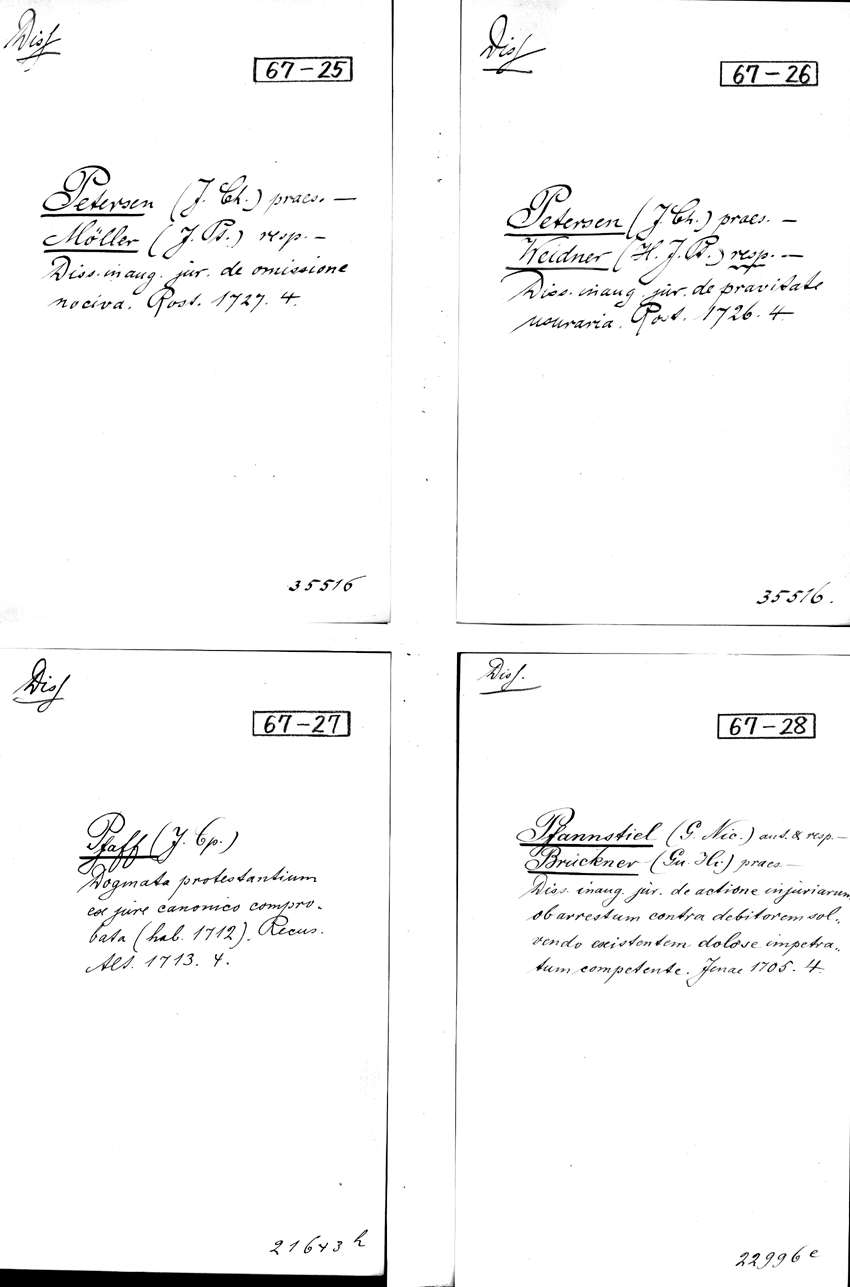 Diss
67-25
Petersen (J. Ch.) praes. —
Möller (J. Pt.) resp. —
Diss. inaug. jur. de omissione
nociva. Rost. 1727. 4.
35516
Diss
67-26
Petersen (J. Ch.) praes. —
Weidner (H. J. Pt.) resp. —
Diss. inaug. jur. de pravitate
usuraria. Rost. 1726. 4
35516.
Diss
67-27
Pfaff (J. Cp.)
Dogmata protestantium
ex jure canonico compro-
bata (hab. 1712). Recus.
1713. 4.
21643 h
Diss.
67-28
Pfannstiel (G. Nic.) aut. & resp. —
Brückner (Gu. Hi.) praes. —
Diss. inaug. jur. de actione injuriarum
ob arrestum contra debitorem sol-
vendo existentem dolose impetra-
tum competente. Jenae 1705. 4.
22996 e